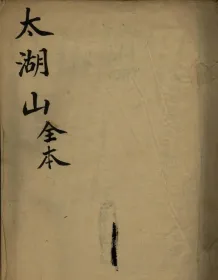 太湖山全本